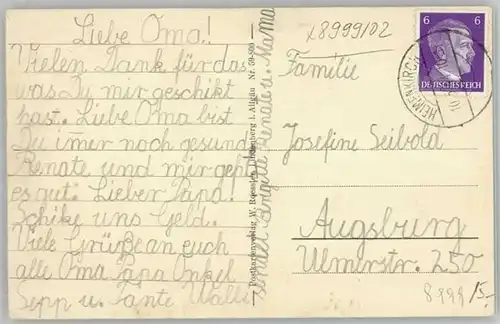 Liebe Oma!
Vielen Dank für das
was Du mir geschikt
hast. Liebe Oma bist
Du imer noch gesund
Renate und mir geht
es gut. Lieber Papa.
Schike uns Geld.
Viele Grüße an euch
alle Oma Papa Onkel
Sepp u. Tante Walli
Brigitte Renate u. Mama
Postkartenverlag W. Lindenberg i. Allgäu Nr.
x8999/02
Familie
Josefine Seibold
Augsburg
Ulmerstr. 250
6 6
DEUTSCHES REICH
HEIMENKIRCH
8999